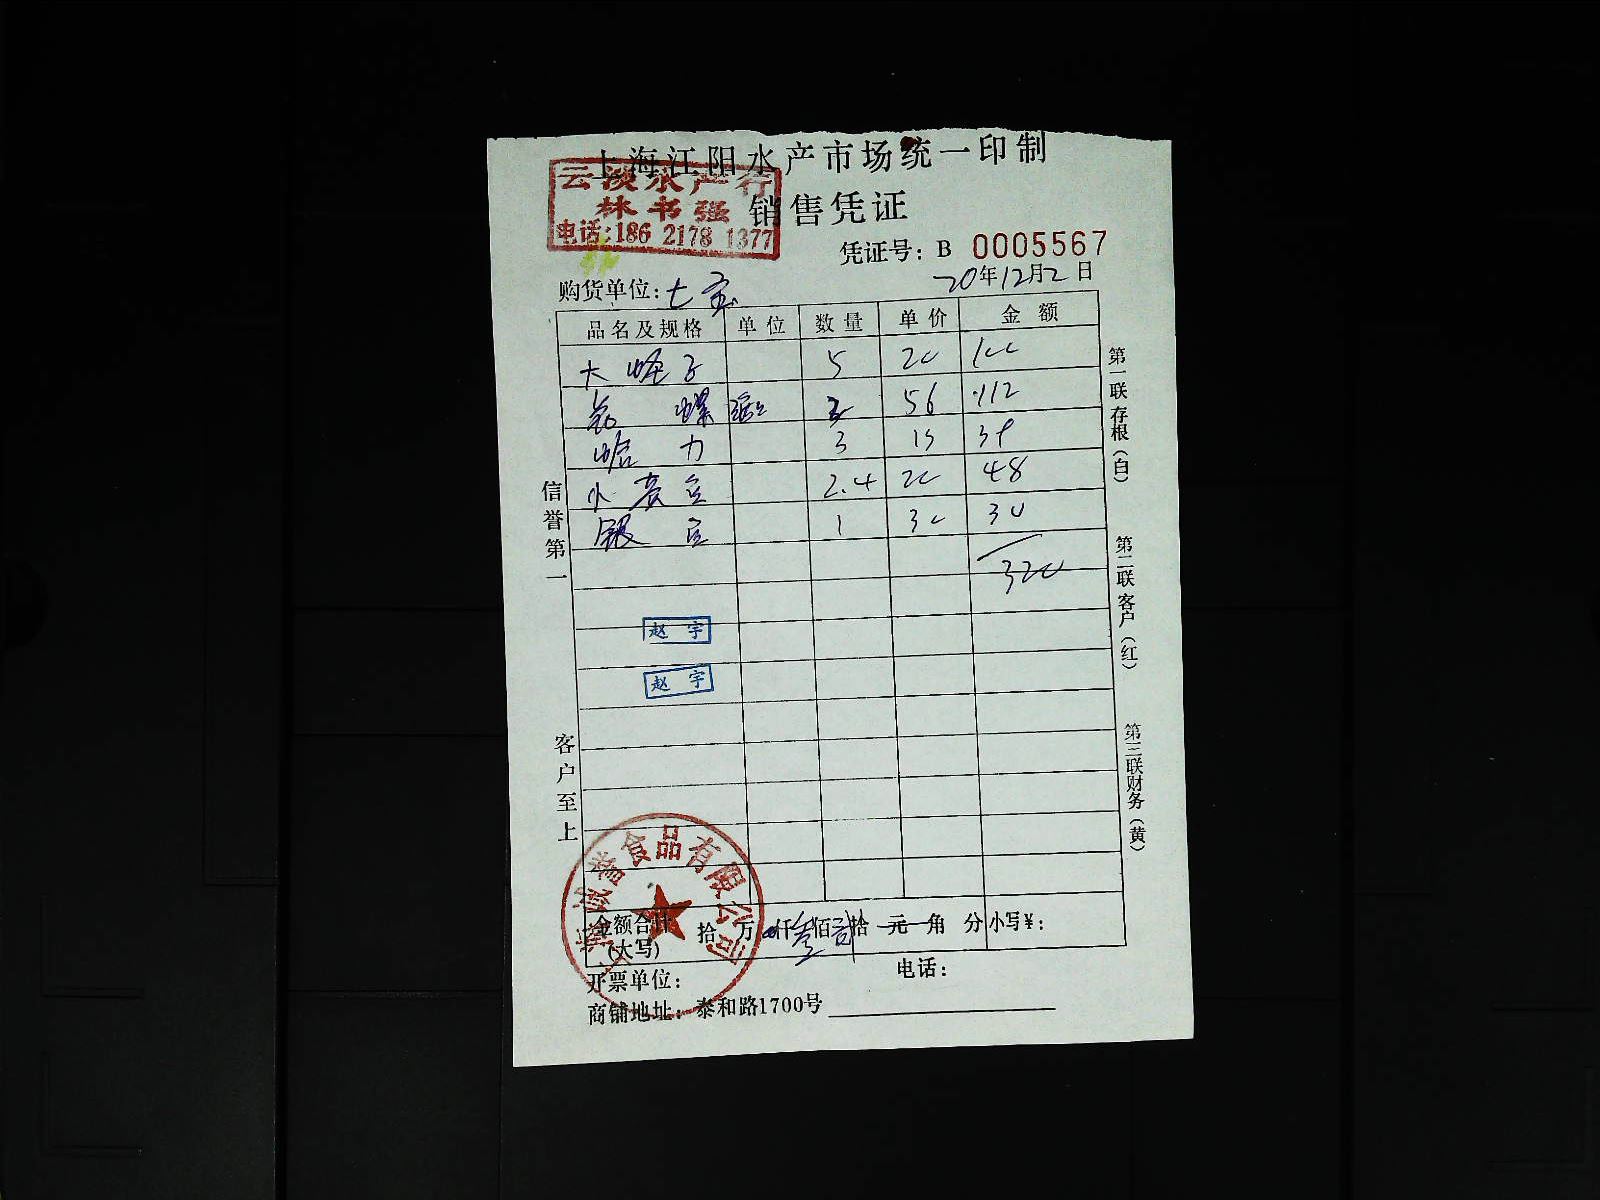 上海江阳水产市场统一印制
云淡水产行
林书强
电话:186 2178 1377
销售凭证
凭证号: B 0005567
20年12月2日
购货单位:七宝
品名及规格 单位 数量 单价 金额
大蛏子 5 20 100
螺 56 112
蛤力 3 13 39
小 2.4 20 48
银 1 30 30
320
赵宇
赵宇
信誉第一
客户至上
第一联存根(白)
第二联客户(红)
第三联财务(黄)
诚誉食品有限公司
金额合计(大写) 拾 万 仟叁佰贰拾 元 角 分 小写¥:
开票单位: 电话:
商铺地址: 泰和路1700号